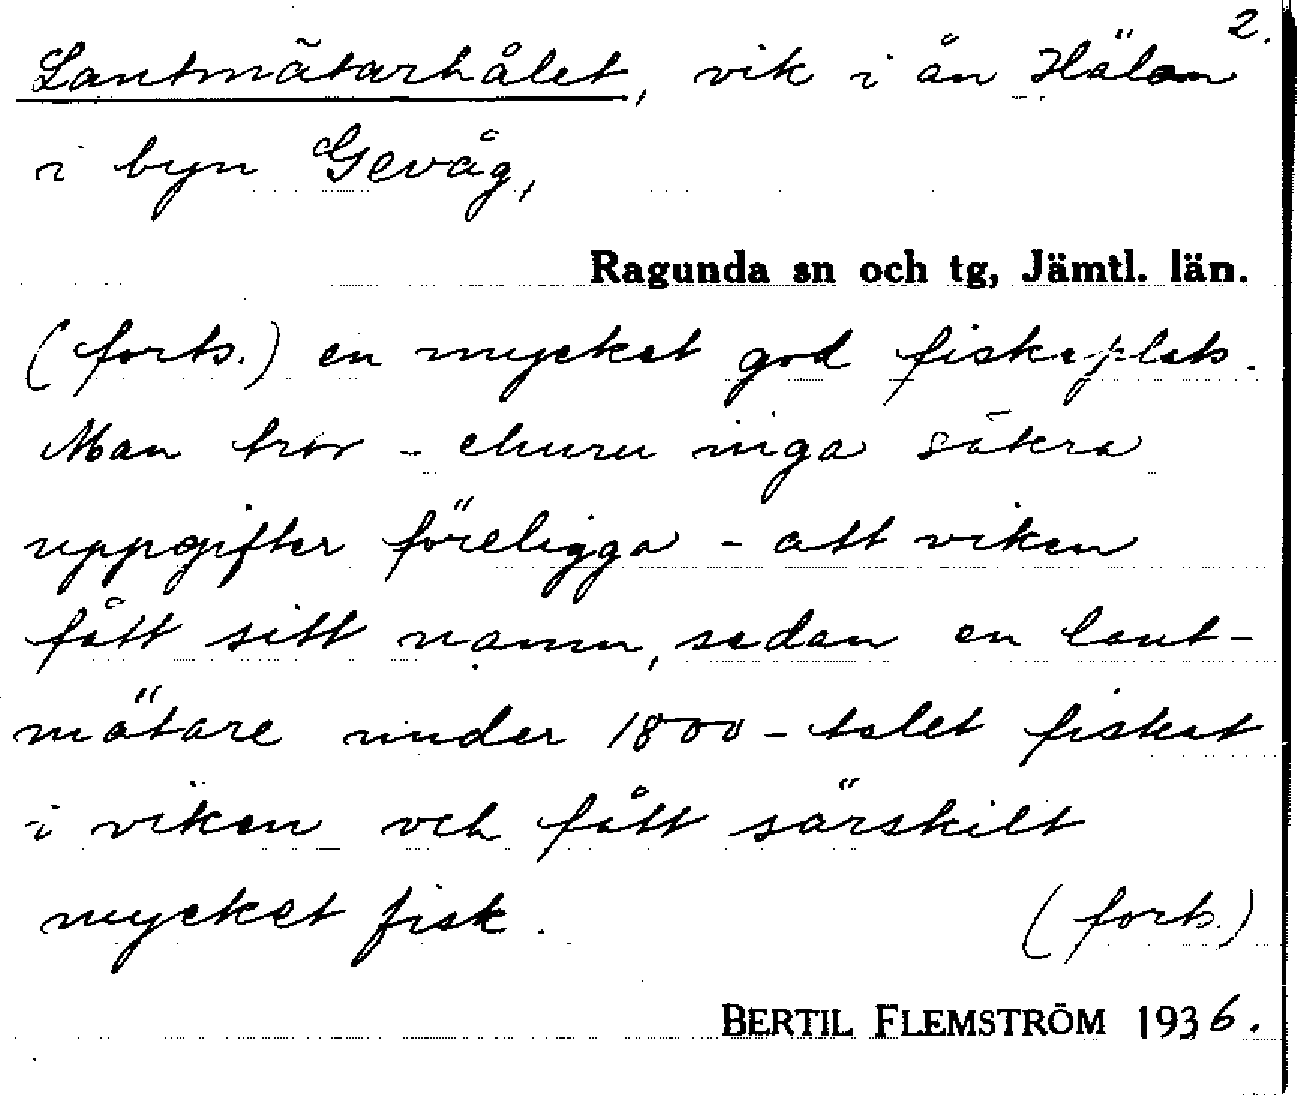 2.
Lantmätarhålet, vik i ån Hälan
i byn Gevåg,
Ragunda sn och tg, Jämtl. län.
(forts.) en mycket god fiskeplats.
Man tror - ehuru inga säkra
uppgifter föreligga - att viken
fått sitt namn, sedan en lant-
mätare under 1800-talet fiskat
i viken och fått särskilt
mycket fisk. (forts.)
BERTIL FLEMSTRÖM 1936.